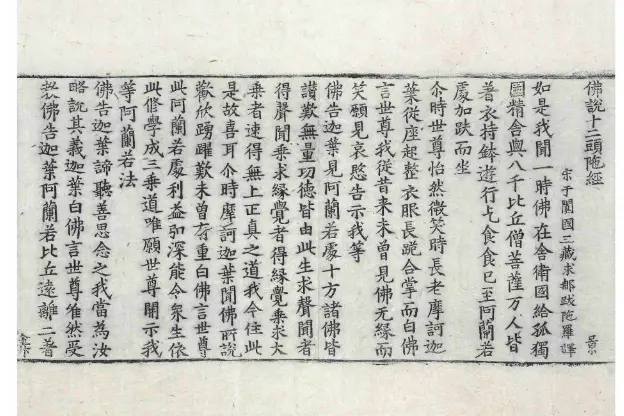 佛說十二頭陁經
宋于闐國三藏求那跋陁羅譯
景
如是我聞一時佛在舍衛國給孤獨
園精舍與八千比丘僧菩薩万人皆
著衣持鉢遊行乞食食已至阿蘭若
處加趺而坐
尒時世尊怡然微笑時長老摩訶迦
葉從座起整衣服長跪合掌而白佛
言世尊我從昔来未曾見佛无緣而
笑願見哀愍告示我等
佛告迦葉見阿蘭若處十方諸佛皆
讃歎無量功德皆由此生求聲聞者
得聲聞乘求緣覺者得緣覺乘求大
乘者速得無上正真之道我今住此
是故喜耳尒時摩訶迦葉聞佛所說
歡欣踊躍歎未曾有重白佛言世尊
此阿蘭若處利益弘深能令衆生依
此修學成三乘道唯願世尊開示我
等阿蘭若法
佛告迦葉諦聽善思念之我當為汝
略說其義迦葉白佛言世尊唯然受
教佛告迦葉阿蘭若比丘遠離二著